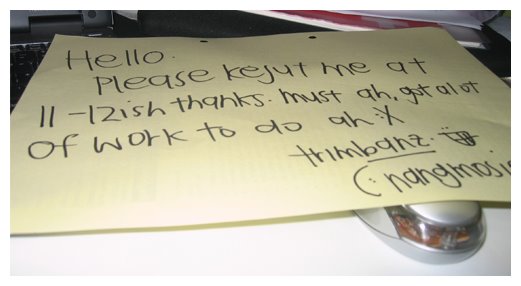 Hello.
Please kejut me at
11-12ish thanks. must ah, got alot
of work to do ah :X
trimbanz.
(: nangmosi